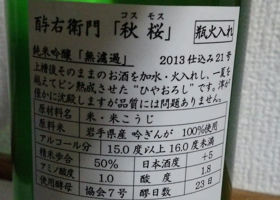 コス モス
酔右衛門「秋桜」 瓶火入れ
純米吟醸「無濾過」 2013仕込み21号
上槽後そのままのお酒を加水・火入れし、一夏
を越えてビン熟成させた“ひやおろし”です。滓が
僅かに沈殿しますが品質には問題ありません。
原材料名 米・米こうじ
原料米 岩手県産 吟ぎんが 100%使用
アルコール分 15.0度以上16.0度未満
精米歩合 50% 日本酒度 +5
アミノ酸度 1.0 酸度 1.8
使用酵母 協会7号 醪日数 23日